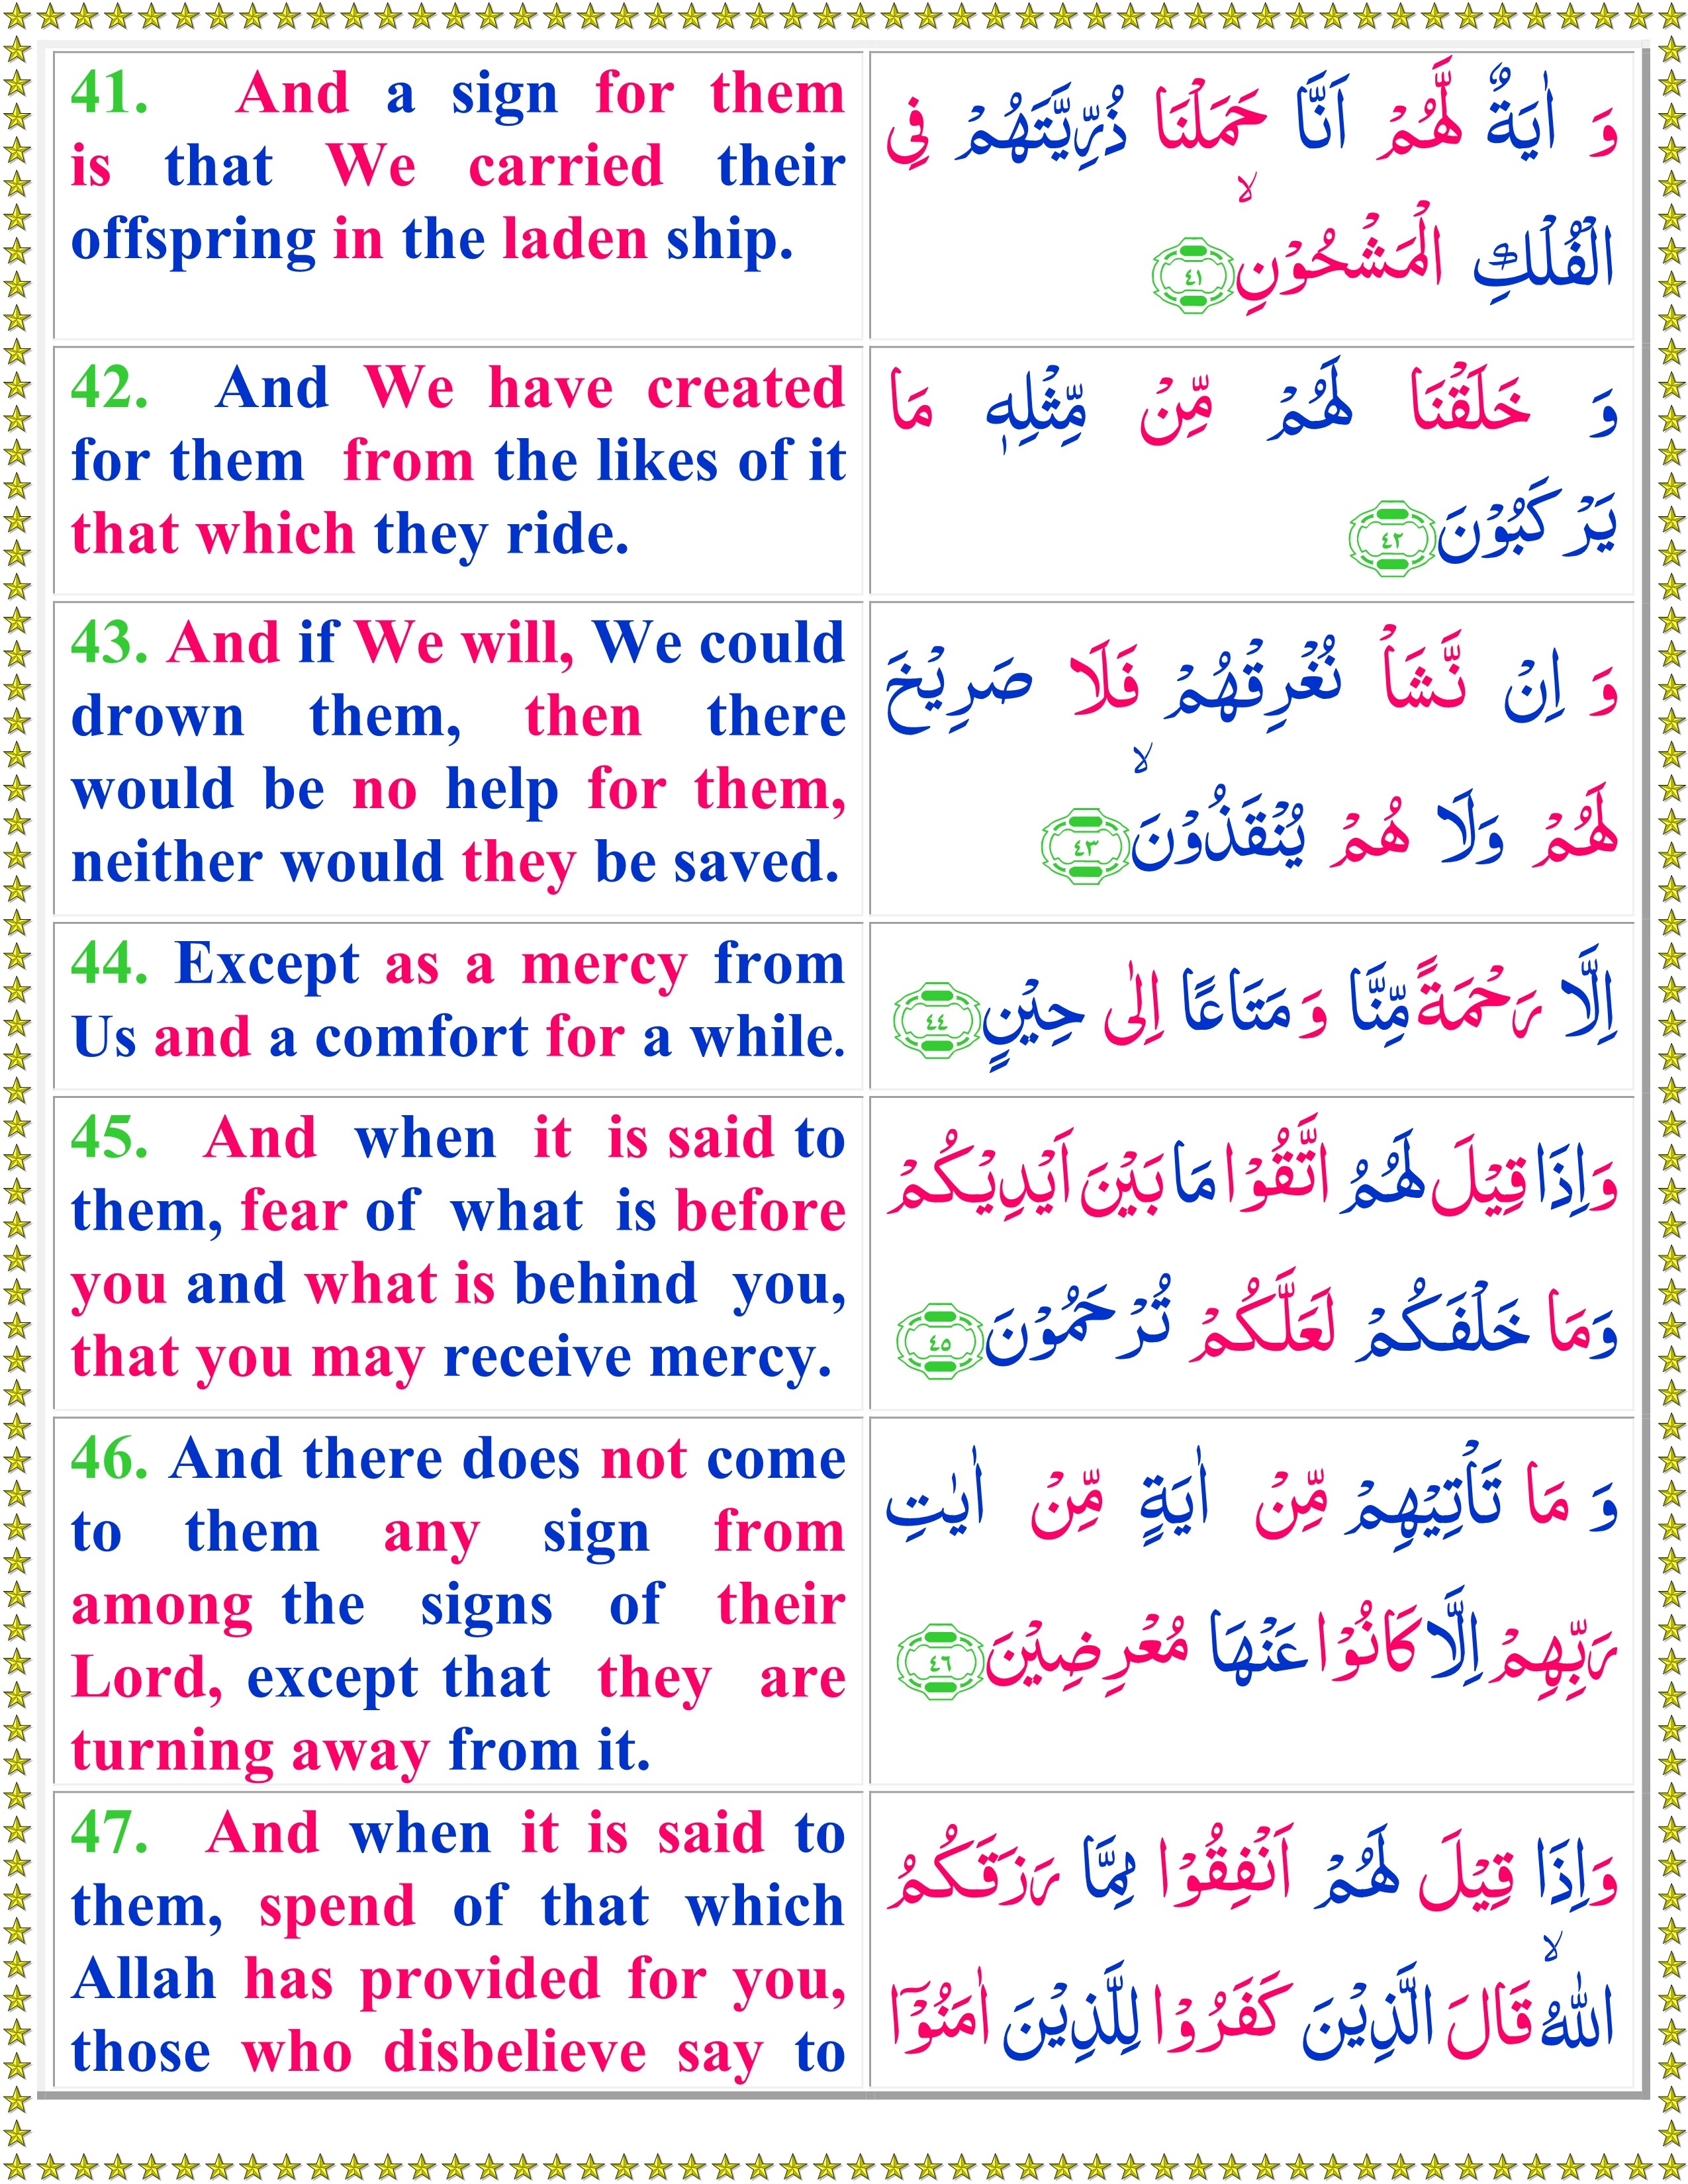 41. And a sign for them
is that We carried their
offspring in the laden ship.
وَ اٰيَةٌ لَّهُمْ اَنَّا حَمَلْنَا ذُرِّيَّتَهُمْ فِى
الْفُلْكِ الْمَشْحُوْنِۙ ٤١
42. And We have created
for them from the likes of it
that which they ride.
وَ خَلَقْنَا لَهُمْ مِّنْ مِّثْلِهٖ مَا
يَرْكَبُوْنَ ٤٢
43. And if We will, We could
drown them, then there
would be no help for them,
neither would they be saved.
وَ اِنْ نَّشَاْ نُغْرِقْهُمْ فَلَا صَرِيْخَ
لَهُمْ وَلَا هُمْ يُنْقَذُوْنَۙ ٤٣
44. Except as a mercy from
Us and a comfort for a while.
اِلَّا رَحْمَةً مِّنَّا وَ مَتَاعًا اِلٰى حِيْنٍ ٤٤
45. And when it is said to
them, fear of what is before
you and what is behind you,
that you may receive mercy.
وَاِذَا قِيْلَ لَهُمُ اتَّقُوْا مَا بَيْنَ اَيْدِيْكُمْ
وَمَا خَلْفَكُمْ لَعَلَّكُمْ تُرْحَمُوْنَ ٤٥
46. And there does not come
to them any sign from
among the signs of their
Lord, except that they are
turning away from it.
وَ مَا تَاْتِيْهِمْ مِّنْ اٰيَةٍ مِّنْ اٰيٰتِ
رَبِّهِمْ اِلَّا كَانُوْا عَنْهَا مُعْرِضِيْنَ ٤٦
47. And when it is said to
them, spend of that which
Allah has provided for you,
those who disbelieve say to
وَاِذَا قِيْلَ لَهُمْ اَنْفِقُوْا مِمَّا رَزَقَكُمُ
اللّٰهُۙ قَالَ الَّذِيْنَ كَفَرُوْا لِلَّذِيْنَ اٰمَنُوْۤا